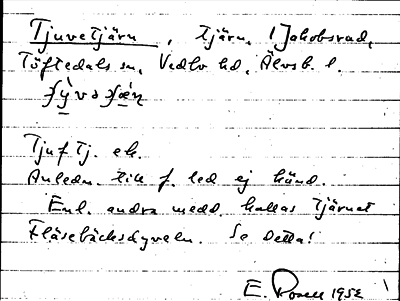 Tjuvetjärn, tjärn, i Jakobsrud,
Töftedals sn, Vedbo hd, Älvsb. l.
Tjuf Tj. ek.
Anledn. till f. led ej känd.
Enl. andra medd. kallas tjärnet
Fläsebäcksdyveln. Se detta!
E. 1952